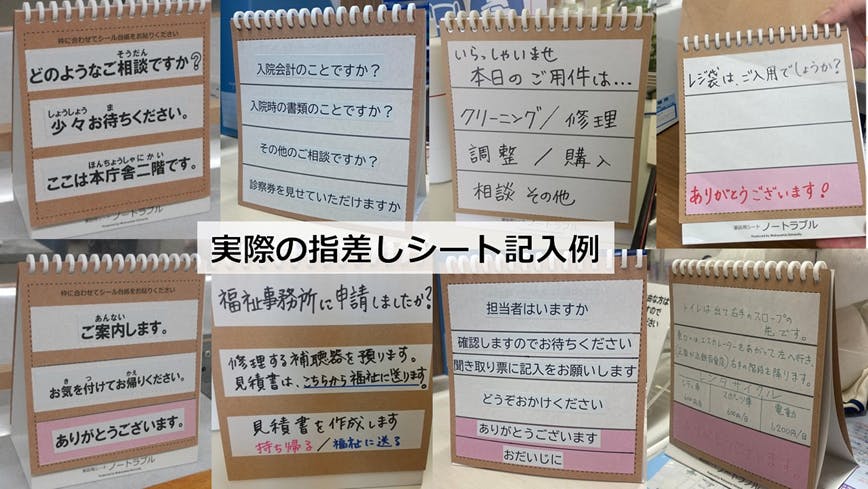 枠に合わせてシール台紙をお貼りください
そうだん
どのようなご相談ですか?
しょうしょう ま
少々お待ちください。
ほんちょうしゃにかい
ここは本庁舎二階です。
入院会計のことですか?
入院時の書類のことですか?
その他のご相談ですか?
診察券を見せていただけますか
いらっしゃいませ
本日のご用件は…
クリーニング/修理
調整/購入
相談 その他
筆談用シート ノートラブル
レジ袋は、ご入用でしょうか?
ありがとうございます!
筆談用シート ノートラブル
実際の指差しシート記入例
枠に合わせてシール台紙をお貼りください
あんない
ご案内します。
き つ かえ
お気を付けてお帰りください。
ありがとうございます。
筆談用シート ノートラブル
福祉事務所に申請しましたか?
修理する補聴器を預ります。
見積書は、こちらから福祉に送ります。
見積書を作成します
持ち帰る/福祉に送る
担当者はいますか
確認しますのでお待ちください
聞き取り票に記入をお願いします
どうぞおかけください
ありがとうございます
おだいじに
トイレは出て右手のスロープの
先です。
レンタサイクル
シティ車 スポーツ車 電動
600円/日 1200円/日
筆談用シート ノートラブル